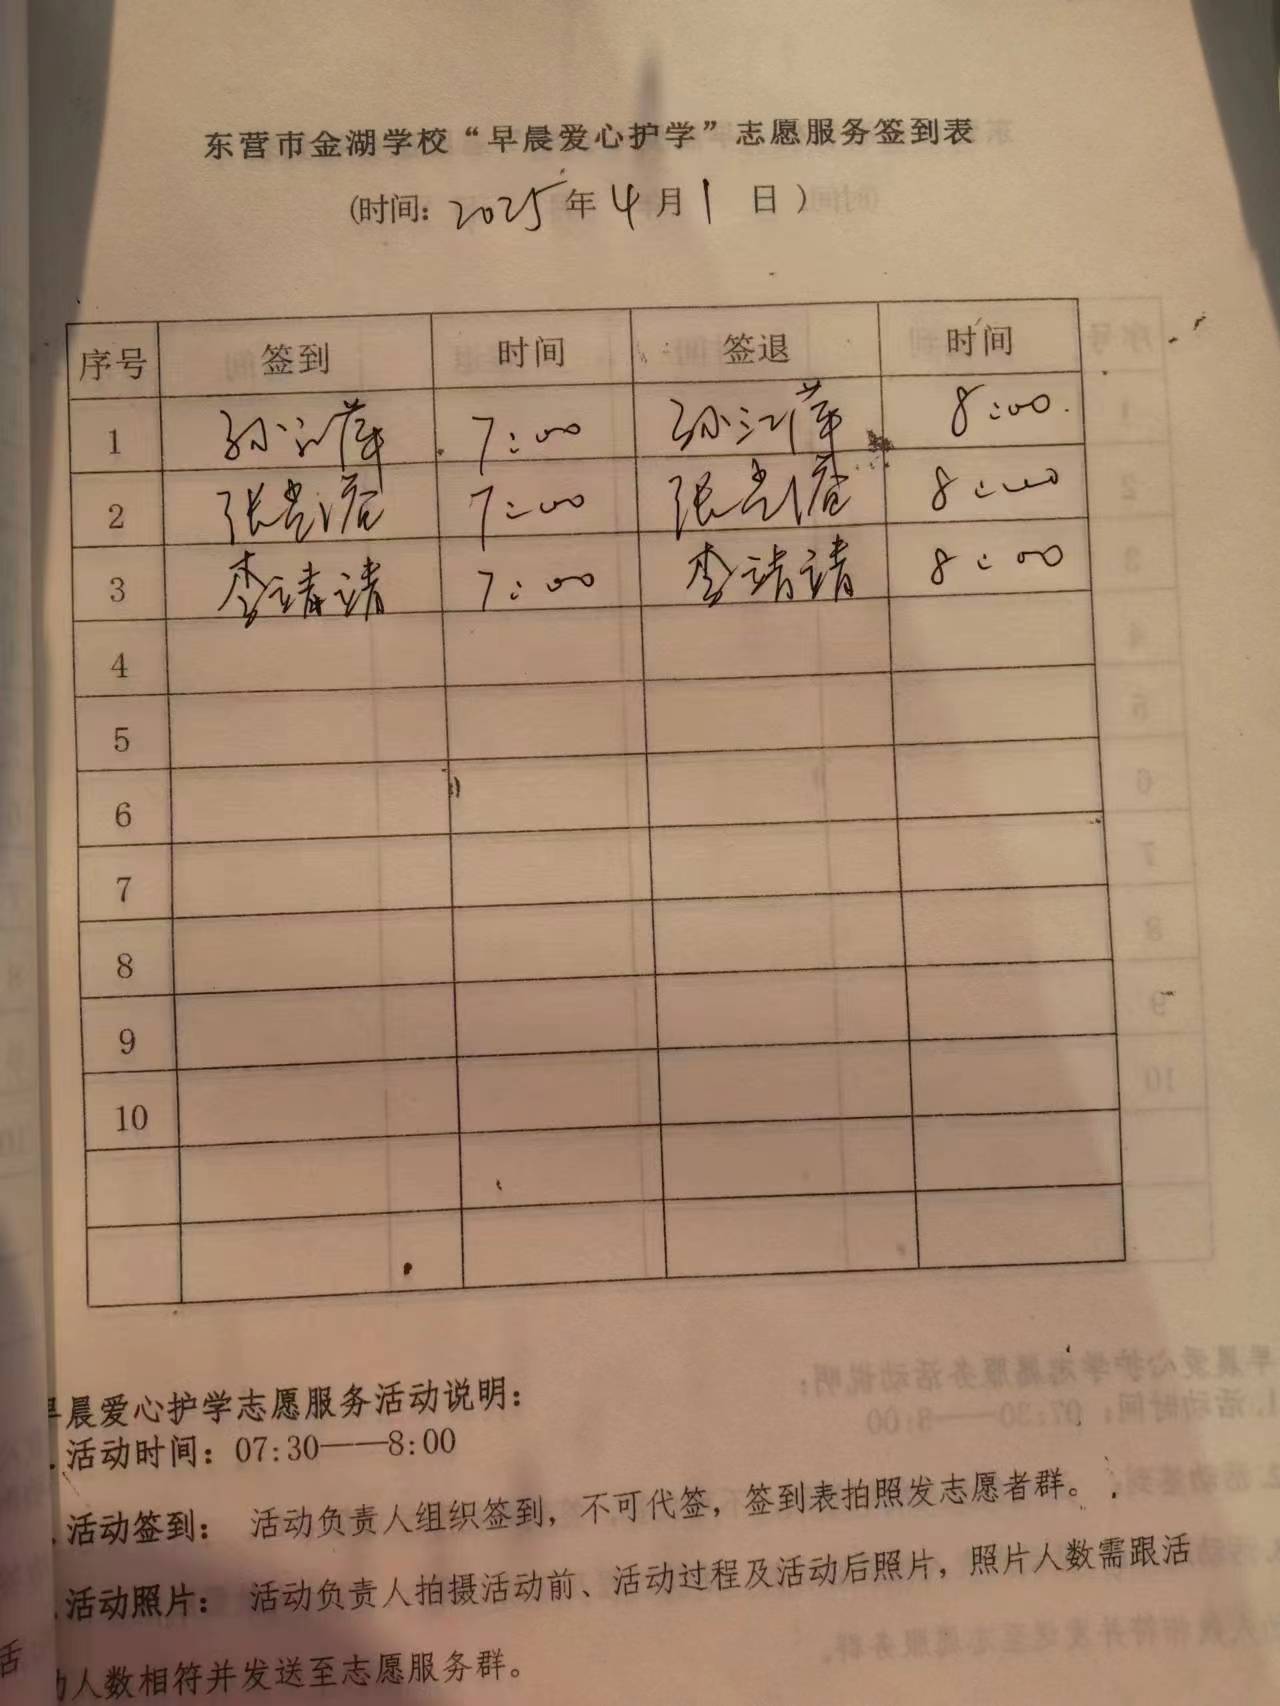 东营市金湖学校“早晨爱心护学”志愿服务签到表
(时间: 2025年4月1 日)
序号 签到 时间 签退 时间
1 孙江萍 7:00 孙江萍 8:00
2 张 7:00 张 8:00
3 李靖靖 7:00 李靖靖 8:00
4
5
6
7
8
9
10
早晨爱心护学志愿服务活动说明:
.活动时间: 07:30——8:00
.活动签到: 活动负责人组织签到,不可代签,签到表拍照发志愿者群。
.活动照片: 活动负责人拍摄活动前、活动过程及活动后照片,照片人数需跟活
动人数相符并发送至志愿服务群。